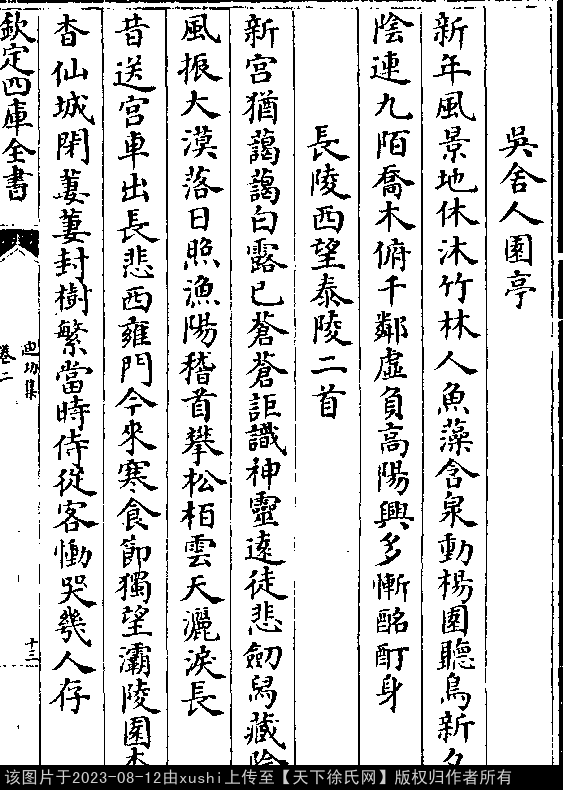 吳舍人園亭
新年風景地休沐竹林人魚藻含泉動楊園聽鳥新夕
陰連九陌喬木俯千鄰虛負高陽興多慚酩酊身
長陵西望泰陵二首
新宮猶藹藹白露已蒼蒼詎識神靈遠徒悲劒舄藏陰
風振大漠落日照漁陽稽首攀松栢雲天灑淚長
昔送宮車出長悲西雍門今來寒食節獨望灞陵園杳
杳仙城閉萋萋封樹繁當時侍從客慟哭幾人存
欽定四庫全書
迪功集
卷二
十三
该图片于2023-08-12由xushi上传至【天下徐氏网】版权归作者所有